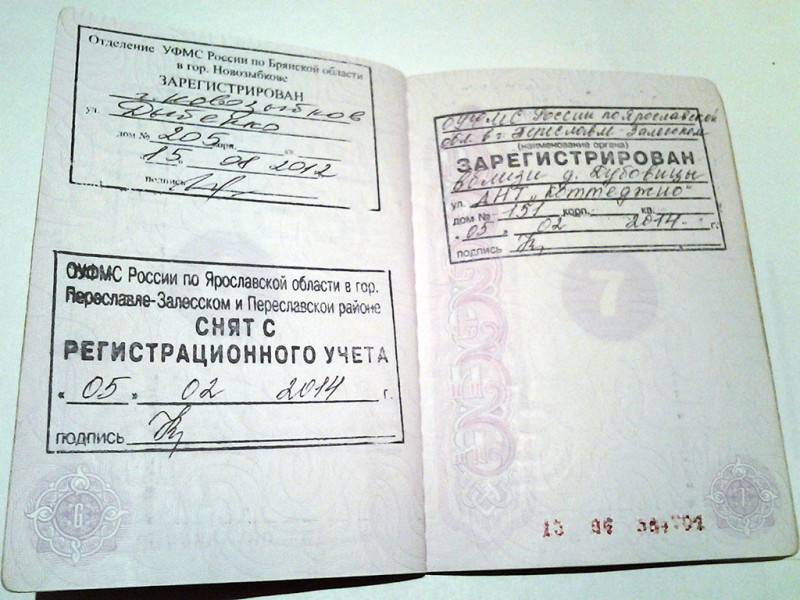 Отделение УФМС России по Брянской области
в гор. Новозыбкове
ЗАРЕГИСТРИРОВАН
г. Новозыбков
ул. Дыбенко
дом № 205 корп. кв.
15. 08 2012
подпись
ОУФМС России по Ярославской области в гор.
Переславле-Залесском и Переславском районе
СНЯТ С
РЕГИСТРАЦИОННОГО УЧЕТА
« 05 » 02 2014 г.
ПОДПИСЬ
6
ОУФМС России по Ярославской
обл. в г. Переславле-Залесском
(наименование органа)
ЗАРЕГИСТРИРОВАН
вблизи д. Дубовицы
ул. АНТ „Коттеджио"
дом № 151 корп. кв.
« 05 » 02 2014 г.
подпись
7
7